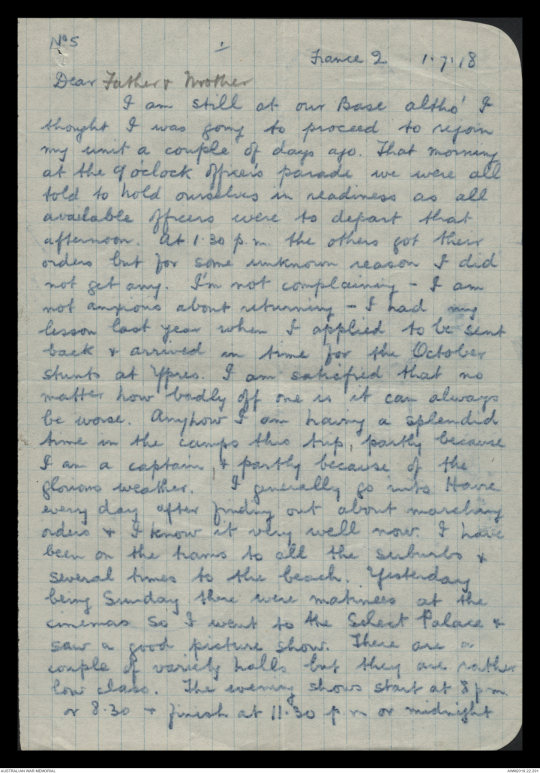 No 5
1
France 2 1.7.18
Dear Father & Mother
I am still at our Base altho' I
thought I was going to proceed to rejoin
my unit a couple of days ago. That morning
at the 9 o'clock officers parade we were all
told to hold ourselves in readiness as all
available officers were to depart that
afternoon. At 1.30 p.m. the others got their
orders but for some unknown reason I did
not get any. I'm not complaining - I am
not anxious about returning - I had my
lesson last year when I applied to be sent
back & arrived in time for the October
stunts at Ypres. I am satisfied that no
matter how badly off one is it can always
be worse. Anyhow I am having a splendid
time in the camps this trip, partly because
I am a captain, & partly because of the
glorious weather. I generally go into Havre
every day after finding out about marching
orders & I know it very well now. I have
been on the trams to all the suburbs &
several times to the beach. Yesterday
being Sunday there were matinees at the
cinemas so I went to the Select Palace &
saw a good picture show. There are a
couple of variety halls but they are rather
low class. The evening shows start at 8 p m
or 8.30 & finish at 11.30 p m or midnight
AUSTRALIAN WAR MEMORIAL